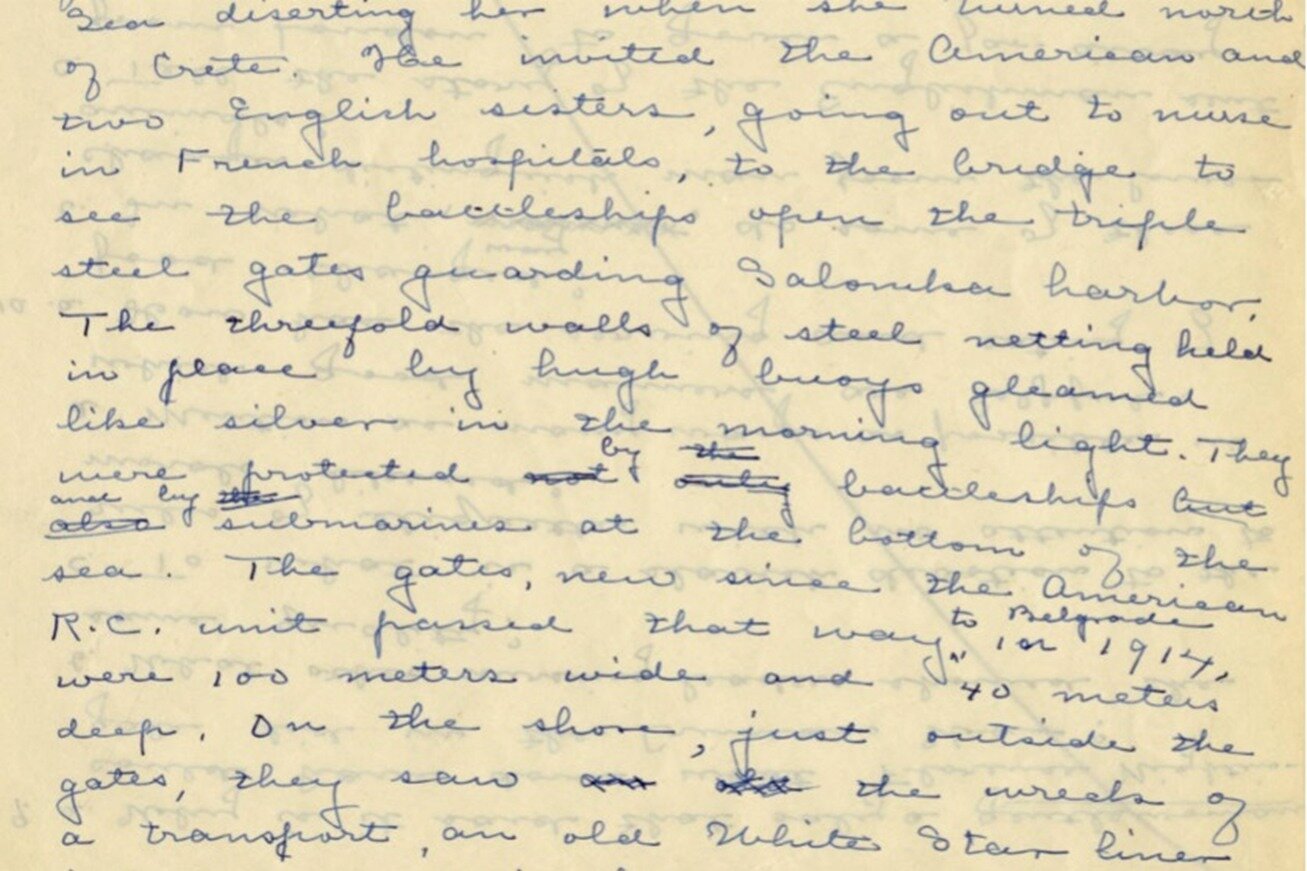 Sea diserting her when she turned north
of Crete. He invited the American and
two English sisters, going out to nurse
in French hospitals, to the bridge to
see the battleships open the triple
steel gates guarding Salonika harbor.
The threefold walls of steel netting held
in place by hugh buoys gleamed
like silver in the morning light. They
by the
were protected not only battleships but
and by the
also submarines at the bottom of the
sea. The gates, new since the American
to Belgrade
R.C. unit passed that way in 1914,
were 100 meters wide and 40 meters
deep. On the shore, just outside the
gates, they saw the wrecks of
a transport, an old White Star liner